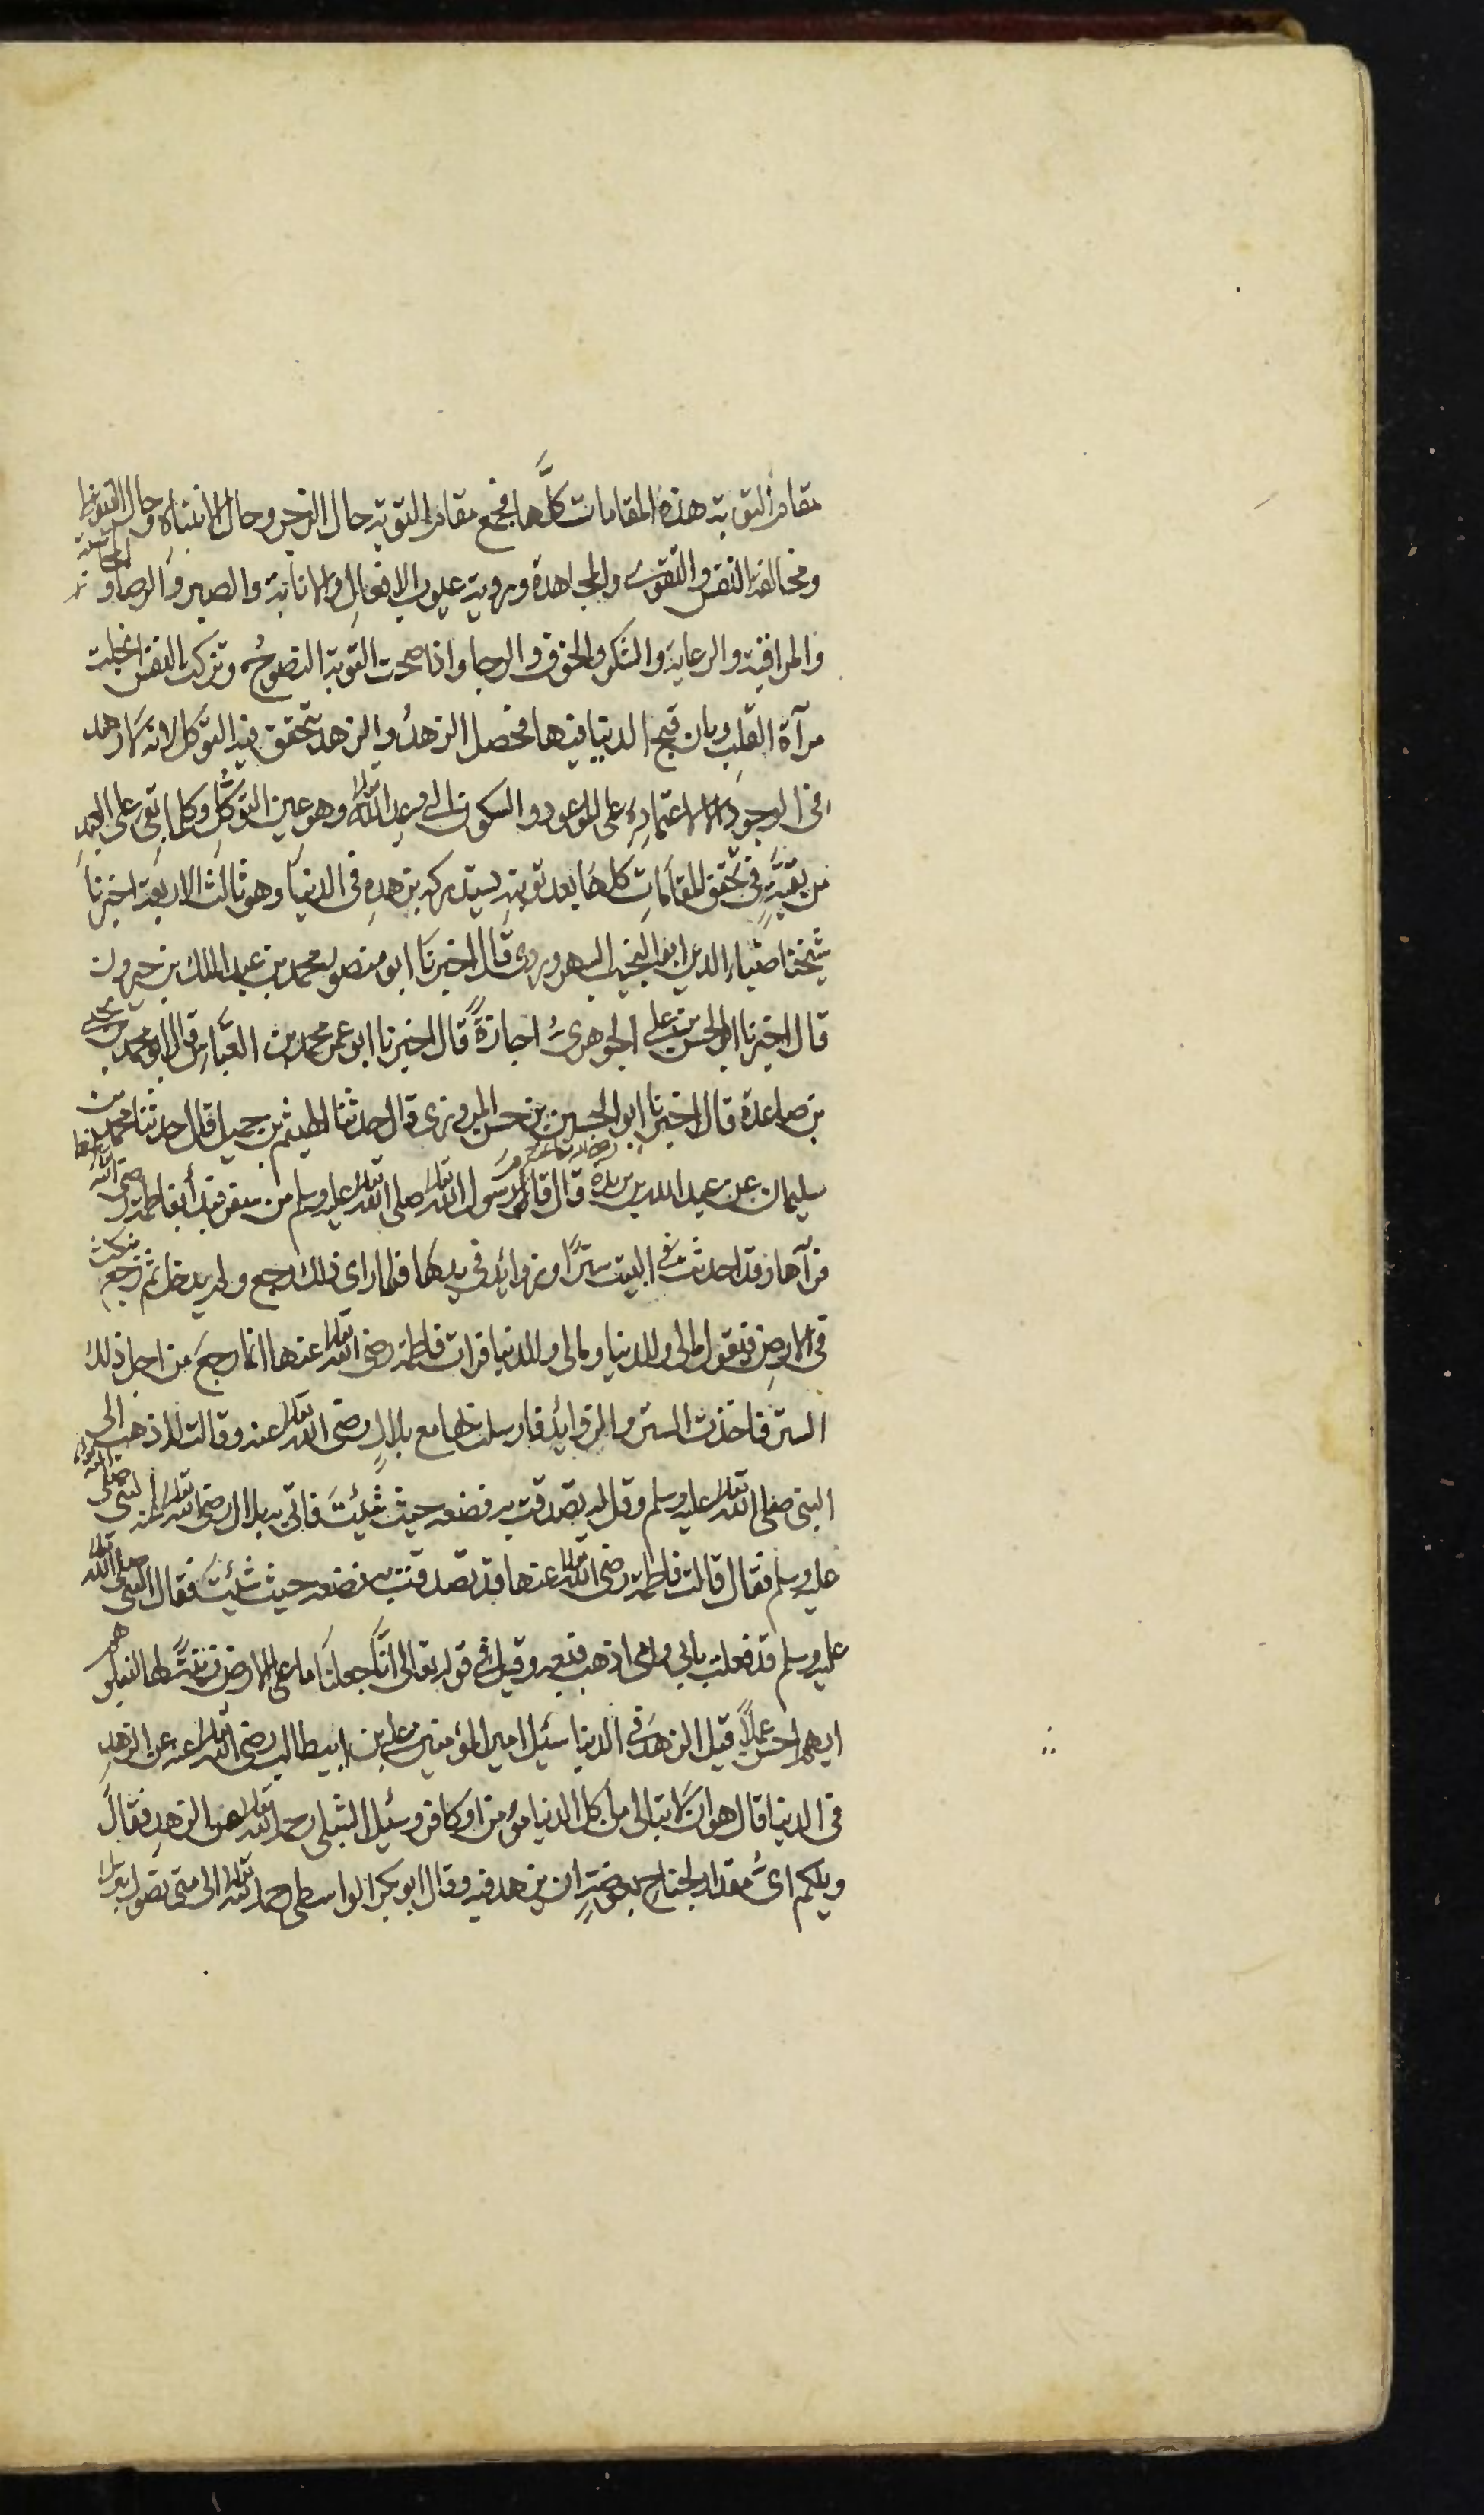 مقام التوبة هذه المقامات كلَّها فجمع مقام التوبة حال الزجر وحال الانتباه وحال التيقظ
ومخالفة النفس والتقوى والمجاهدة وروية عيوب الافعالِ والانابة والصبر والرضا و المحاسبة
والمراقبة والرعاية والشكر والخوف والرجا واذا صحت التوبة النصوحُ وتزكت النفس انجلت
مرآة القلبِ وبان قبح الدنيا فيها فحصل الزهدُ والزهد يتحقق فيه التوكل لانه لا زهد
فى الموجود الا لاعتمادِه على الموعود والسكون الى وعد الله تعالى وهو عين التوكّلِ وكلما بقى على العبدِ
من بقيَّةٍ فى تحقق المقاماتِ كلها بعد توبتهِ يستدركه بزهدهِ فى الدنيا وهو ثالث الاربعة اخبرنا
شيخنا ضياء الدين ابو النجيب السهروردى قال اخبرنا ابو منصور محمد بن عبد الملك بن خيرون
قال اخبرنا ابو الحسن بن على الجوهرىُ اجازةً قال اخبرنا ابو عمر محمد بن العبَّاس قال ابو محمد يحيى
بن صاعدة قال اخبرنا ابو الحسين بن حسن المروزى قال حدثنا الهيثم بن جميل قال حدثنا محمد بن
سليمان عن عبد الله بن بريدة قال قدم رسول الله تعالى صلى الله تعالى عليه وسلم من سفر فبدأ بفاطمة رضى الله
فرآها وقد احدثت فى البيت سترًا وزوائد فى يديها فلما راى ذلك رجع ولم يدخل ثم رجع ينكث
فى الارضِ فيقول مالى وللدنيا ومالى وللدنيا فرات فاطمة رضى الله تعالى عنها انما رجع من اجل ذلك
الستر فاخذت الستر والزوائد فارسلت بها مع بلالٍ رضى الله تعالى عنه وقالت له اذهب الى
النبى صلى الله تعالى عليه وسلم وقل له تصدقت به فضعه حيث شئتَ فاتى به بلال رضى الله تعالى عنه النبى صلى الله
عليه وسلم فقال قالت فاطمة رضى الله تعالى عنها قد تصدقت به فضعه حيث شئتَ فقال النبى صلى الله تعالى
عليه وسلم قد فعلت بابى وامى اذهب فبعه وقيل فى قوله تعالى انَّا جعلنا ما على الارض زينةً لها لنبلوهم
ايهم احسن عملاً قيل الزهد فى الدنيا سئيل امير المؤمنين على بن ابيطالب رضى الله تعالى عنه عن الزهدِ
فى الدنيا قال هو ان لا تبالى من أكل الدنيا مؤمن او كافر وسئيل الشبلى رحمه الله تعالى عن الزهدِ فقال
ويلكم اىُّ مقدار لجناح بعوضةٍ ان يزهد فيه وقال ابو بكر الواسطى رحمه الله تعالى الى متى تصول بترك